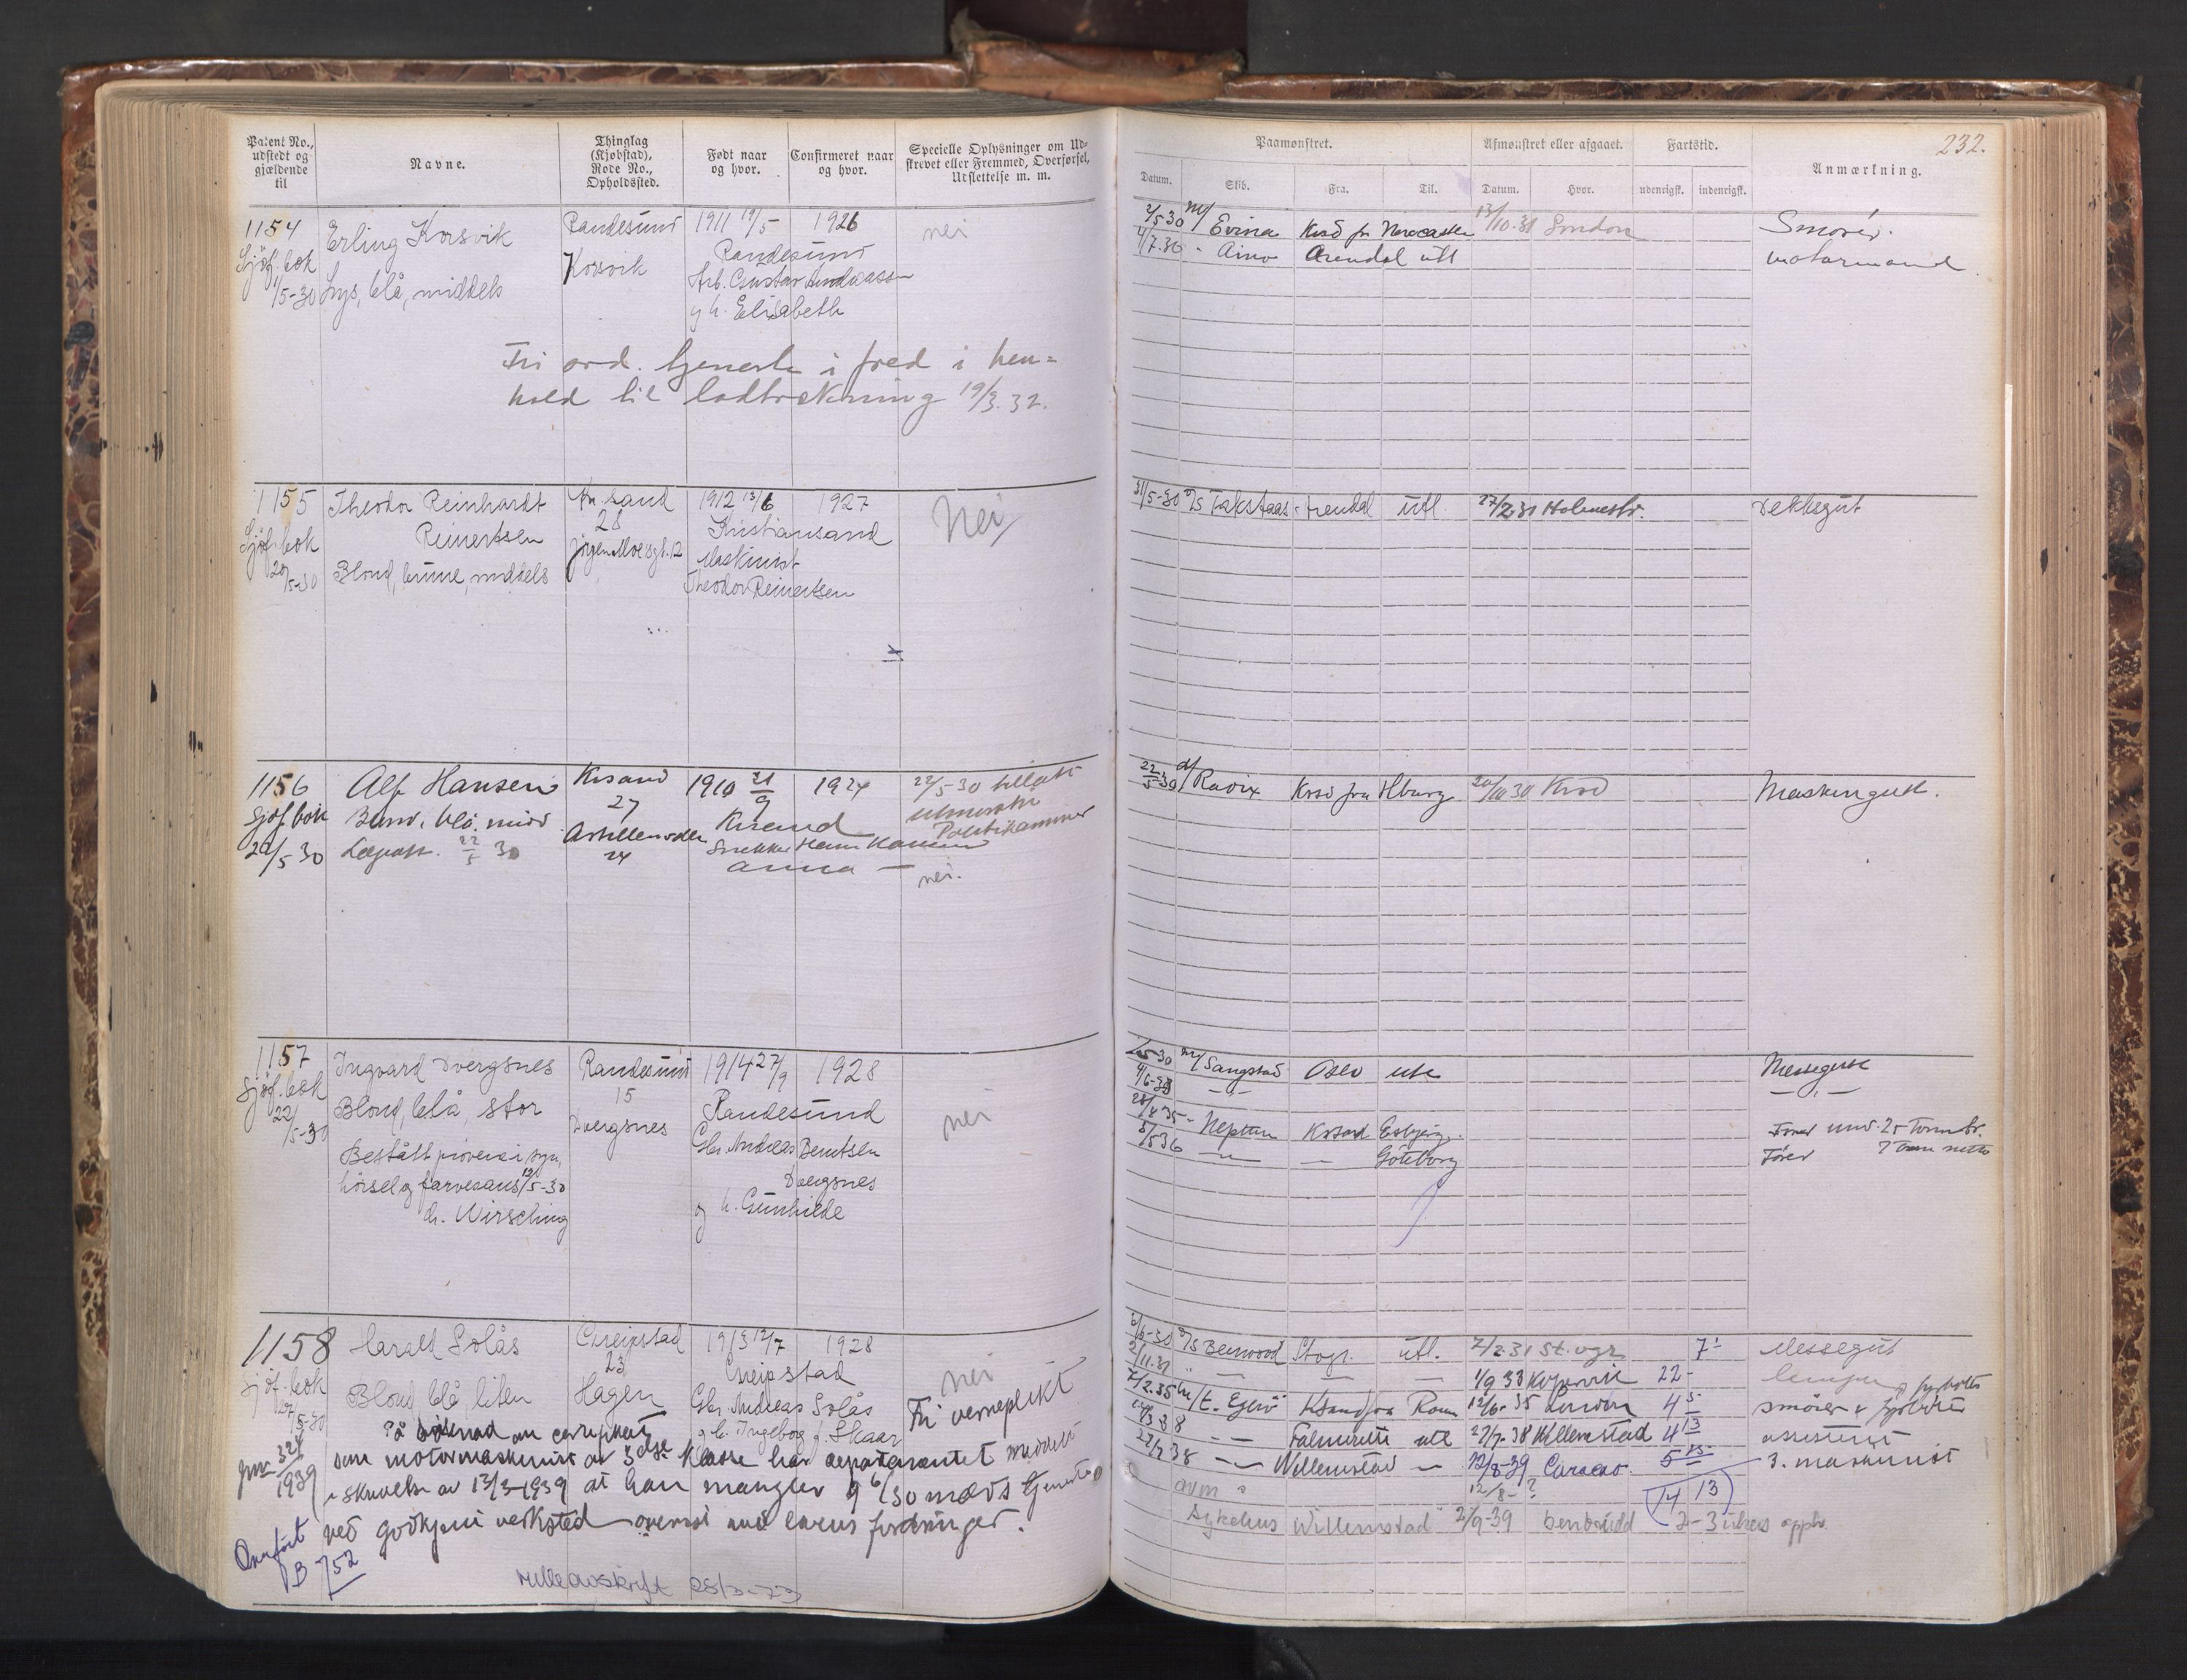 232.
Patent No., udstedt og gjældende til
Navne.
Thinglag (Kjøbstad), Rode No., Opholdssted.
Født naar og hvor.
Confirmeret naar og hvor.
Specielle Oplysninger om Udskrevet eller Fremmed, Overførsel, Udslettelse m. m.
Paamønstret.
Afmønstret eller afgaaet.
Fartstid.
Anmærkning.
Datum. Skib. Fra. Til. Datum. Hvor. udenrigsk. indenrigsk.
1154 Erling Korsvik Randesund 1911 19/5 1926 nei
Sjøf. bok Korsvik Randesund
1/5-30 Lys, blå, middels Arb. Gustav
g h. Elisabeth
Fri ord. tjeneste i fred i hen=
hold til lodtrekning 19/3.32.
2/5 30 m/ Evina Krsd fr Newcastle 13/10.31 London Smører.
1/7.30 - Aino Arendal utl motormand
1155 Theodor Reinhardt Kr.sand 1912 13/6 1927 Nei
Sjøf. bok Reinertsen 28 Kristiansand
20/5-30 Blond, brune, middels Jørgen Moesgt. 12 Maskinist
Theodor Reinertsen
31/5-30 D/S Takstaas Arendal utl. 27/2 31 Holmestr. Dekksgut
1156 Alf Hansen Krsand 1910 21/9 1924 22/5-30 tillatt
Sjøf bok blå. 27 Krsand utmønstre
22/5 30 22/5 30 24 Snekker Hansen Politikammer
Anna — nei.
22/5 30 d/ Ravix Krsd fra Hburg 20/10 30 Krsd Maskingutt.
1157 Ingvard Dvergsnes Randesund 1914 27/9 1928
Sjøf. bok Blond, blå, stor 15 Randesund nei
22/5-30 Dvergsnes Gbr. Andreas Berntsen
Bestått prøve i syn, Dvergsnes
hørsel og farvesans 19/5-30 og h. Gunhilde
dr. Wirsching
m/ Sangstad Oslo utl Messegutt
—„— —„—
Neptun Krsand Esbjerg. Fører und. 25 Tonn br.
5/5 36 —„— — Göteborg Fører 7 Tonn netto
1158 Harald Solås Greipstad 1913 12/7 1928
Sjøf. bok 23 Greipstad nei
27/5-30 Blond, blå, liten Hagen Gbr. Andreas Solås Fri verneplikt
g h. Ingeborg f. Skaar
På søknad om certifikat
jnr 324/1939 som motormaskinist av 3dje klasse har departementet meddelt
i skrivelse av 13/3-1939 at han mangler 9 6/30 mndrs tjeneste
ved godkjent verksted overensst med lovens fordringer.
Overført
PB 752
Rulleavskrift
D/S Benwood Stvgr. utl. 7/2.31 St.vgr 7- Messegut
2/11.31 — — — 1/9 33 Kopervik 22- lemper
7/2.35 m/t. Egerö Krsand fra Rouen 12/6-35 London 4 5 smører &
38 —„— Falmouth utl 27/7-38 Willemstad 4 13 assistent
27/7 38 —„— Willemstad — 12/8-39 Curacao. 5 25 3. maskinist
avm " 12/8- ? 14 13
Sykehus Willemstad 2/9-39 benbrudd - 2-3 ukers opph.